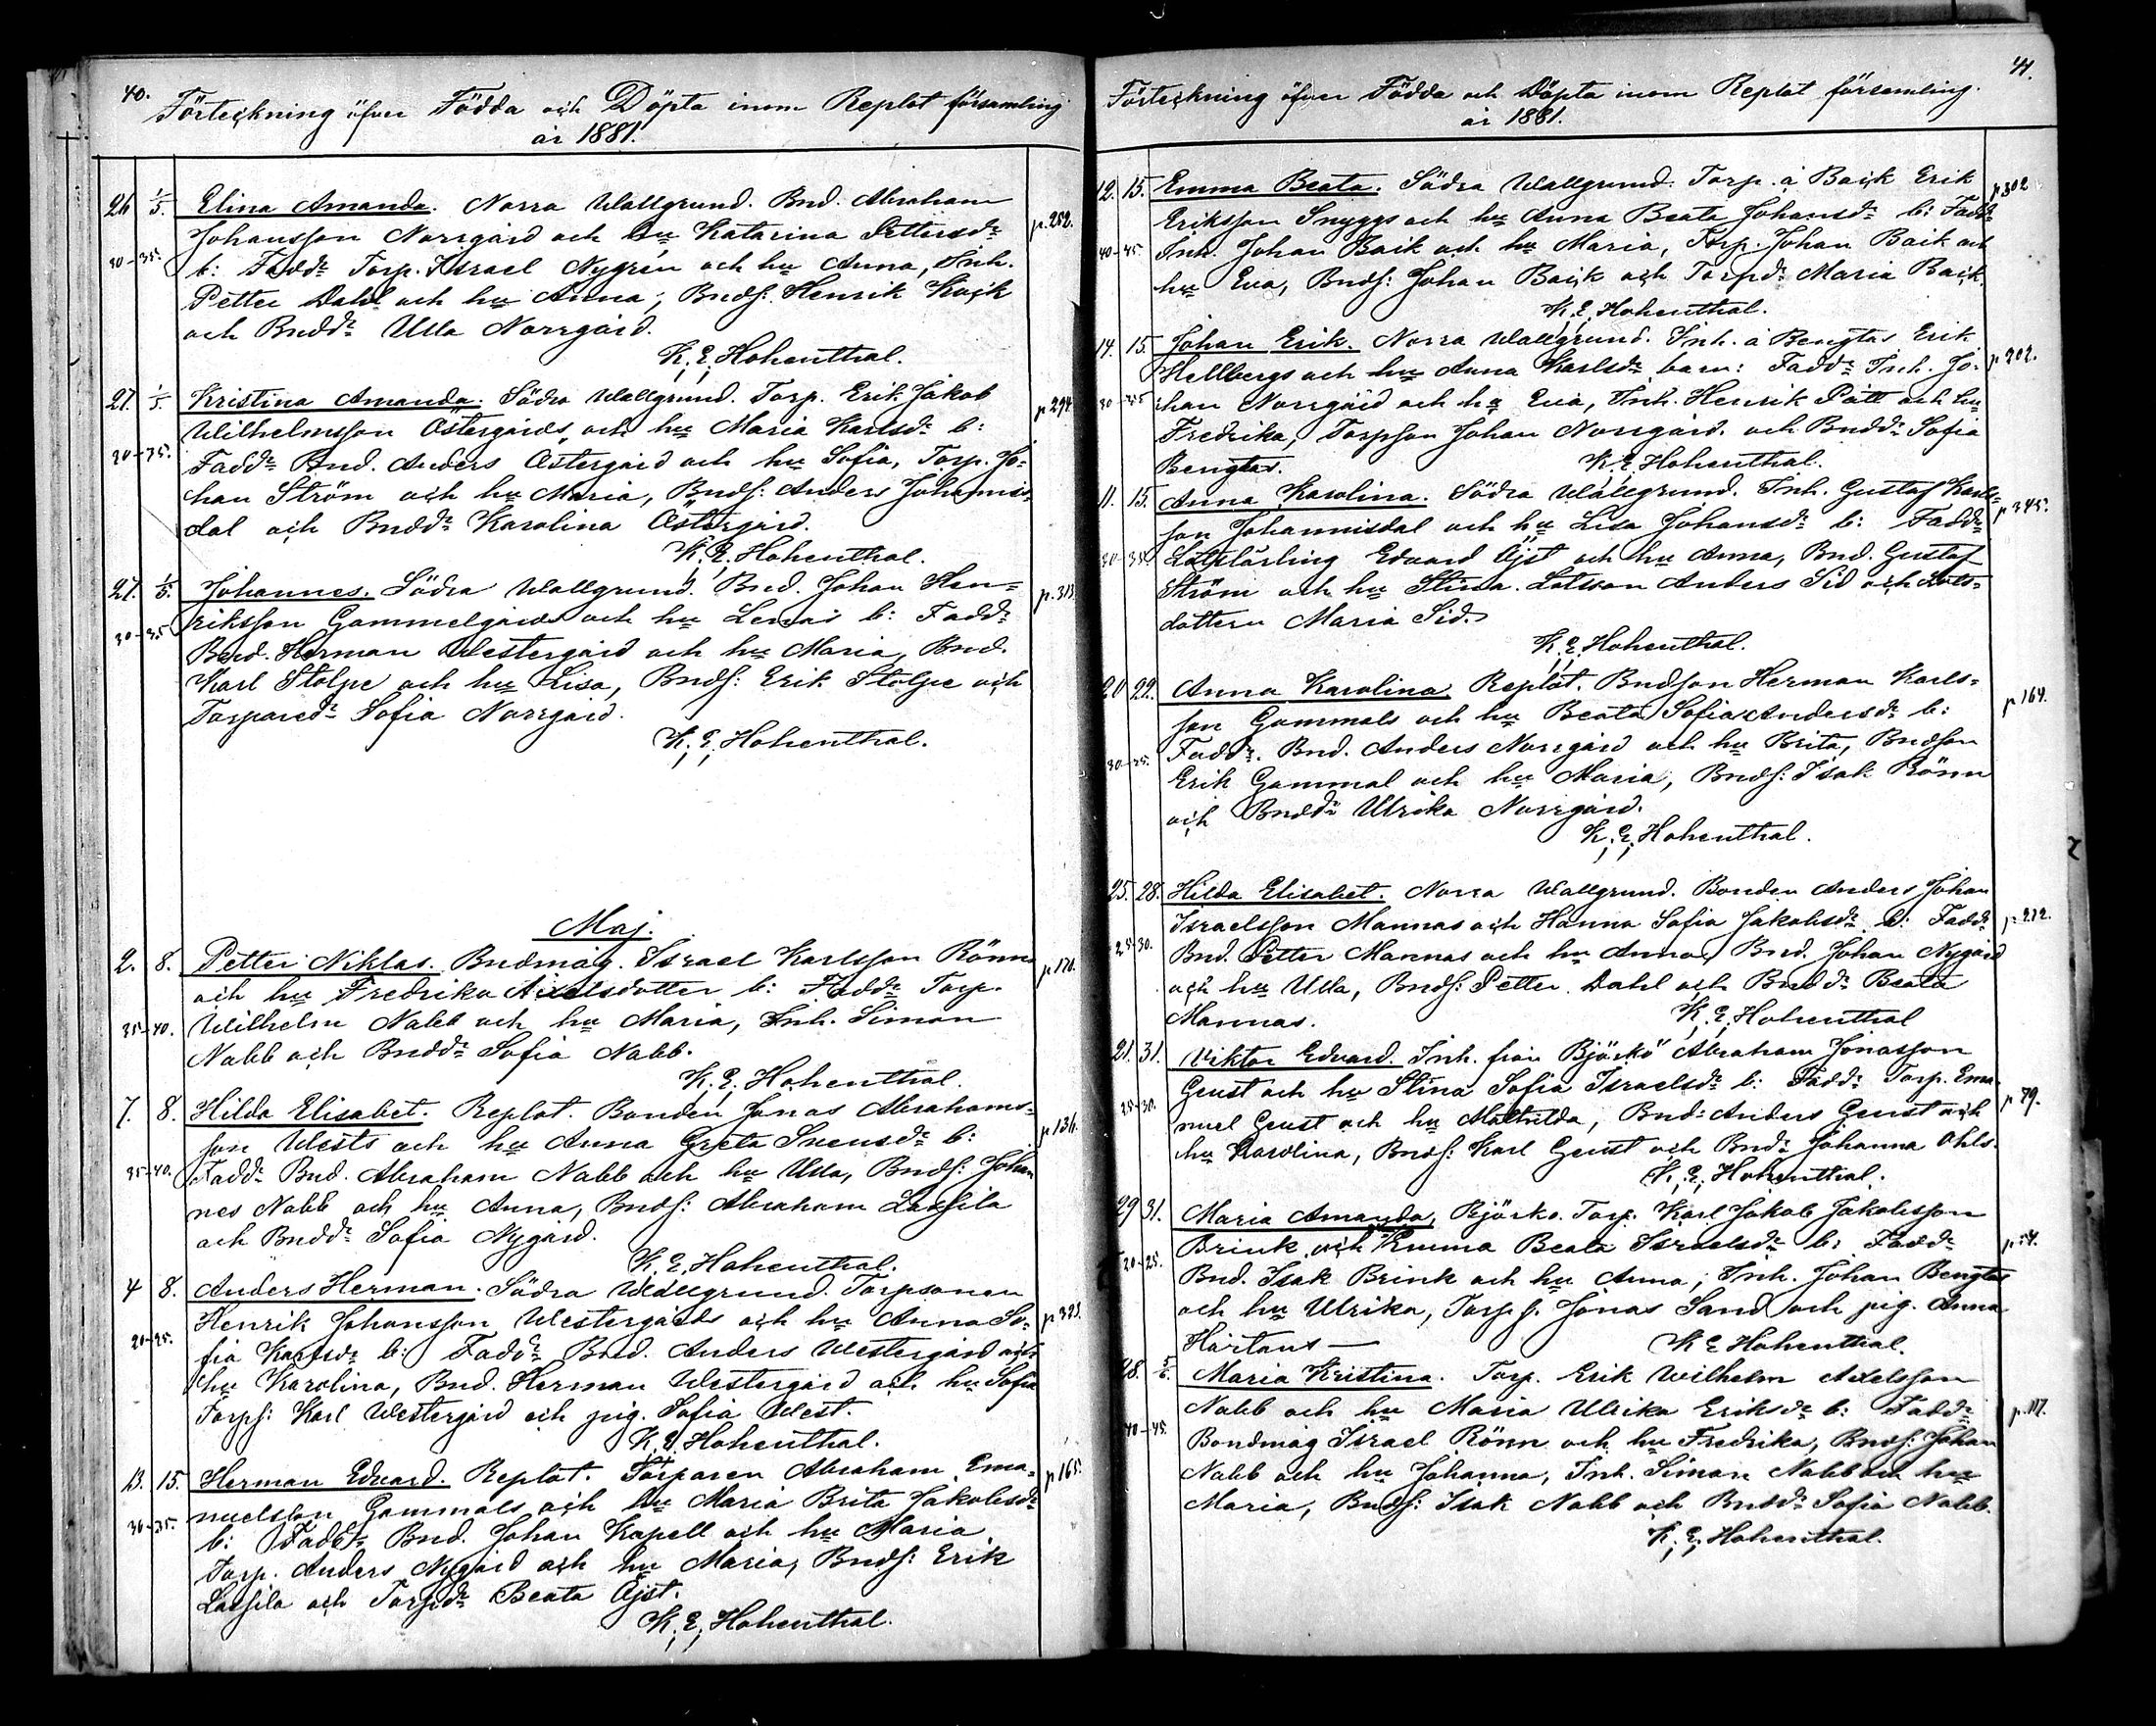 40.
Förteckning öfver Födda och Döpta inom Replot församling
år 1881.
26 1/5. Elina Amanda. Norra Wallgrund. Bnd. Abraham
Johansson Norrgård och hu Katarina Pettersdr p. 252.
30-35. b: Faddr Torp. Israel Nygrén och hu Anna, Inh.
Petter Dahl och hu Anna, Bnds: Henrik Kack
och Bnddr Ulla Norrgård.
K. E. Hohenthal.
27. 1/5. Kristina Amanda. Södra Wallgrund. Torp. Erik Jakob p. 294
Wilhelmsson Östergårds och hu Maria Karlsdr b:
30-35. Faddr Bnd. Anders Östergård och hu Sofia, Torp. Jo-
han Ström och hu Maria, Bnds: Anders Johannis-
dal och Bnddr Karolina Östergård.
K. E. Hohenthal.
27. 1/5. Johannes. Södra Wallgrund. Bnd. Johan Hen- p. 313
riksson Gammelgårds och hu Lena b: Faddr
30-35 Bnd. Herman Westergård och hu Maria, Bnd.
Karl Stolpe och hu Lisa, Bnds: Erik Stolpe och
Torparedr Sofia Norrgård.
K. E. Hohenthal.
Maj.
2. 8. Petter Niklas. Bndmåg. Israel Karlsson Rönn p. 170.
och hu Fredrika Axelsdotter b: Faddr Torp.
35-40. Wilhelm Nabb och hu Maria, Inh. Simon
Nabb och Bnddr Sofia Nabb.
K. E. Hohenthal.
7. 8. Hilda Elisabet. Replot. Bonden Jonas Abrahams-
son Wests och hu Anna Greta Svensdr b: p 136.
35-40. Faddr Bnd. Abraham Nabb och hu Ulla, Bnds: Johan
nes Nabb och hu Anna, Bnds: Abraham Lassila
och Bnddr Sofia Nygård.
K. E. Hohenthal.
4 8. Anders Herman. Södra Wallgrund. Torpsonen
Henrik Johansson Westergårds och hu Anna So- p 323.
20-25. fia Karlsdr b: Faddr Bnd. Anders Westergård och
hu Karolina, Bnd. Herman Westergård och hu Sofia
Torps: Karl Westergård och pig. Sofia West.
K. E. Hohenthal.
13. 15. Herman Edvard. Replot. Torparen Abraham Ema- p 165.
nuelsson Gammals och hu Maria Brita Jakobsdr
30-35. b: Faddr Bnd. Johan Kapell och hu Maria
Torp. Anders Nygård och hu Maria, Bnds: Erik
Lassila och Torpdr Beata Öjst.
K. E. Hohenthal.
41.
Förteckning öfver Födda och Döpta inom Replot församling.
år 1881.
12. 15. Emma Beata. Södra Wallgrund. Torp. å Back Erik p 302
Eriksson Snyggs och hu Anna Beata Johansdr b: Faddr
40-45 Inh. Johan Back och hu Maria, Torp. Johan Back och
hu Eva, Bnds: Johan Back och Torpdr Maria Back.
K. E. Hohenthal.
14. 15. Johan Erik. Norra Wallgrund. Inh. å Bengtas Erik
Hellbergs och hu Anna Karlsdr barn: Faddr Inh. Jo- p 202.
30-35 han Norrgård och hu Eva, Inh. Henrik Pått och hu
Fredrika, Torpson Johan Norrgård och Bnddr Sofia
Bengtas. K. E. Hohenthal.
11. 15. Anna Karolina. Södra Wallgrund. Inh. Gustaf Karls-
son Johannisdal och hu Lisa Johansdr b: Faddr p 345.
30-35 Lotslärling Edvard Öjst och hu Anna, Bnd. Gustaf
Ström och hu Stina. Lotsson Anders Sid och Lots-
dottern Maria Sid.
K. E. Hohenthal.
20 22. Anna Karolina. Replot. Bndson Herman Karls-
son Gammals och hu Beata Sofia Andersdr b: p 164.
30-35. Faddr. Bnd. Anders Norrgård och hu Brita, Bndson
Erik Gammal och hu Maria, Bnds: Isak Rönn
och Bnddr Ulrika Norrgård.
K. E. Hohenthal.
25. 28. Hilda Elisabet. Norra Wallgrund. Bonden Anders Johan
Israelsson Mannas och Hanna Sofia Jakobsdr b: Faddr p. 212.
25-30. Bnd. Petter Mannas och hu Anna, Bnd. Johan Nygård
och hu Ulla, Bnds: Petter Dahl och Bnddr Beata
Mannas. K. E. Hohenthal
21. 31. Viktor Edvard. Inh. från Björkö Abraham Jonasson
Geust och hu Stina Sofia Israelsdr b: Faddr Torp. Ema-
25-30. nuel Geust och hu Mathilda, Bnd: Anders Geust och p 79.
hu Karolina, Bnds: Karl Geust och Bnddr Johanna Ohls.
K. E. Hohenthal.
29 31. Maria Amanda, Björkö. Torp. Karl Jakob Jakobsson
Brink och Emma Beata Israelsdr b: Faddr
20-25. Bnd. Isak Brink och hu Anna, Inh. Johan Bengtas
och hu Ulrika, Torps. Jonas Sand och pig. Anna
Hartans— K E Hohenthal.
28. 5/6. Maria Kristina. Torp. Erik Wilhelm Axelsson
Nabb och hu Maria Ulrika Eriksdr b: Faddr p. 117.
40-45. Bondmåg Israel Rönn och hu Fredrika, Bnds: Johan
Nabb och hu Johanna, Inh. Simon Nabb och hu
Maria, Bnds: Isak Nabb och Bnddr Sofia Nabb.
K. E. Hohenthal.